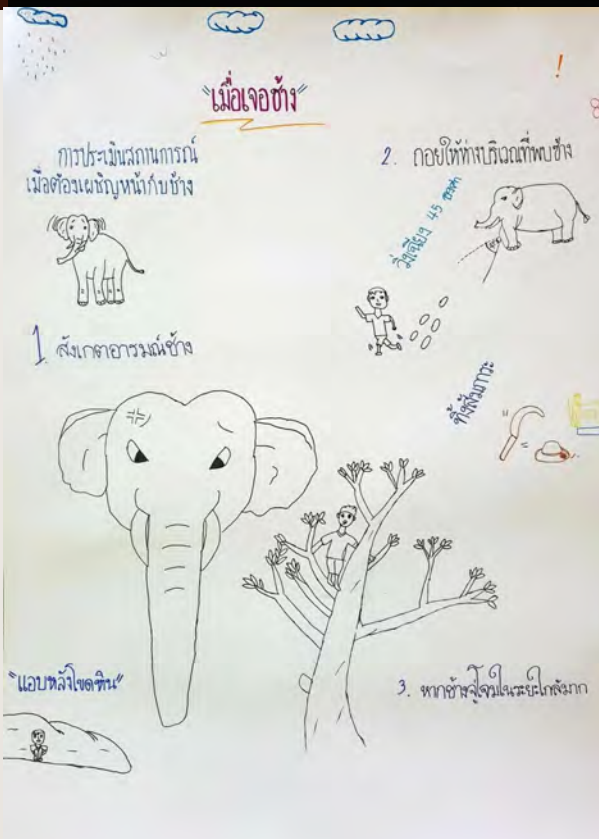 "เมื่อเจอช้าง"
การประเมินสถานการณ์
เมื่อต้องเผชิญหน้ากับช้าง
1 สังเกตอารมณ์ช้าง
2. ถอยให้ห่างบริเวณที่พบช้าง
วิ่งเฉียง 45 องศา
ทิ้งสัมภาระ
"แอบหลังโขดหิน"
3. หากช้างจู่โจมในระยะใกล้มาก
!